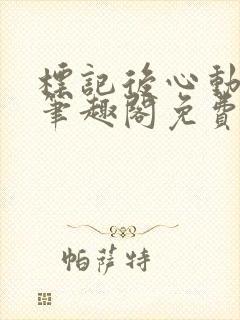 標記後心動
筆趣閣免費
帕薩特